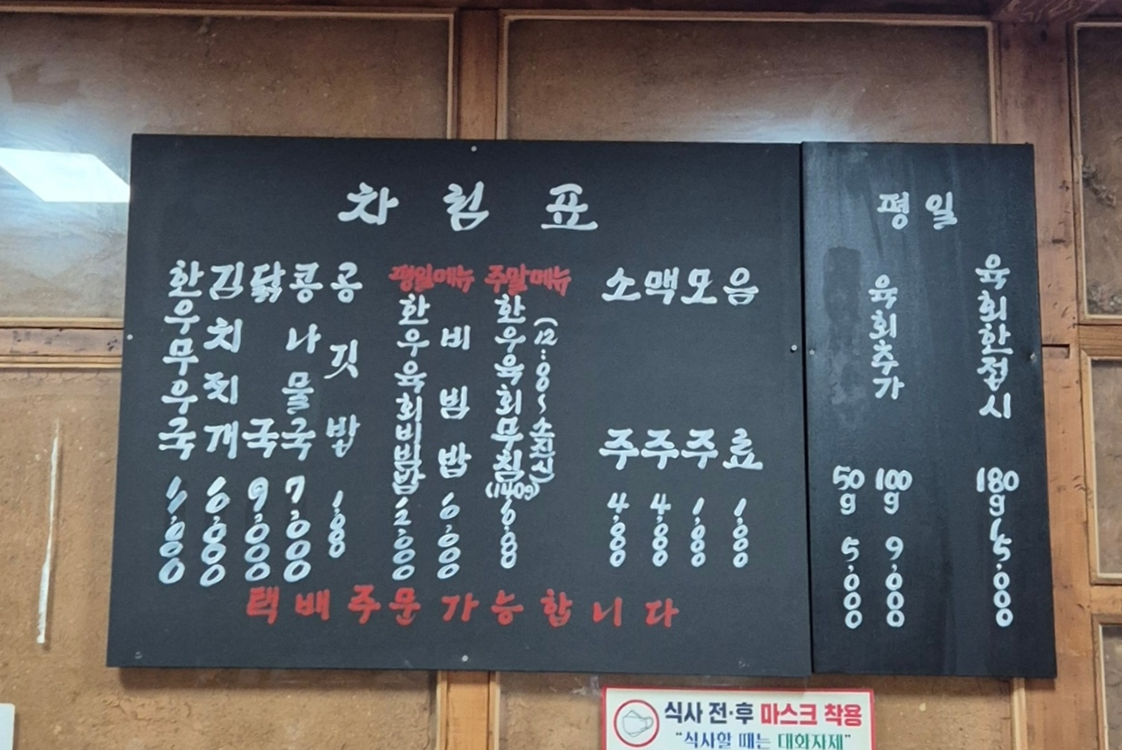 차림표
한우무우국
김치찌개 6,000
닭국 9,000
콩나물국 7,000
공깃밥 1,000
평일메뉴
한우육회비빔밥
비빔밥 6,000
주말메뉴
한우육회무침
(140g)
(12:00~소진시)
소주 4,000
맥주 4,000
모주 1,000
음료 1,000
택배주문가능합니다
평일
육회추가
50g 5,000
100g 9,000
육회한접시
180g 15,000
식사 전·후 마스크 착용
"식사할 때는 대화자제"